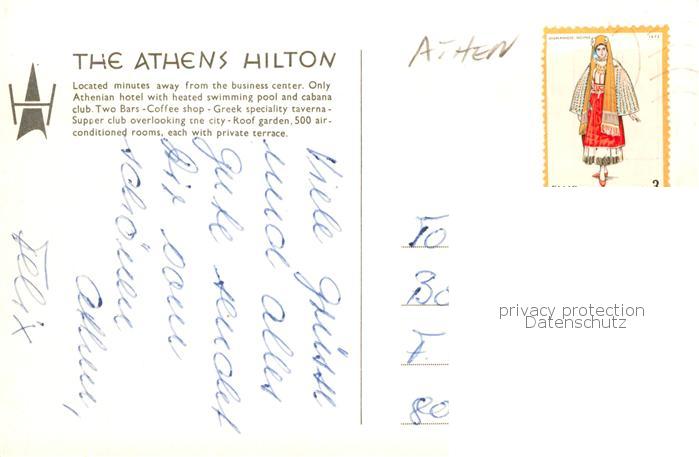 THE ATHENS HILTON
Located minutes away from the business center. Only
Athenian hotel with heated swimming pool and cabana
club. Two Bars - Coffee shop - Greek speciality taverna -
Supper club overlooking the city - Roof garden, 500 air-
conditioned rooms, each with private terrace.
ATHEN
Viele Grüsse
und alles
Gute sendet
Dir vom
schönen
Athen,
Felix
3
To
Bo
F.
80
privacy protection
Datenschutz